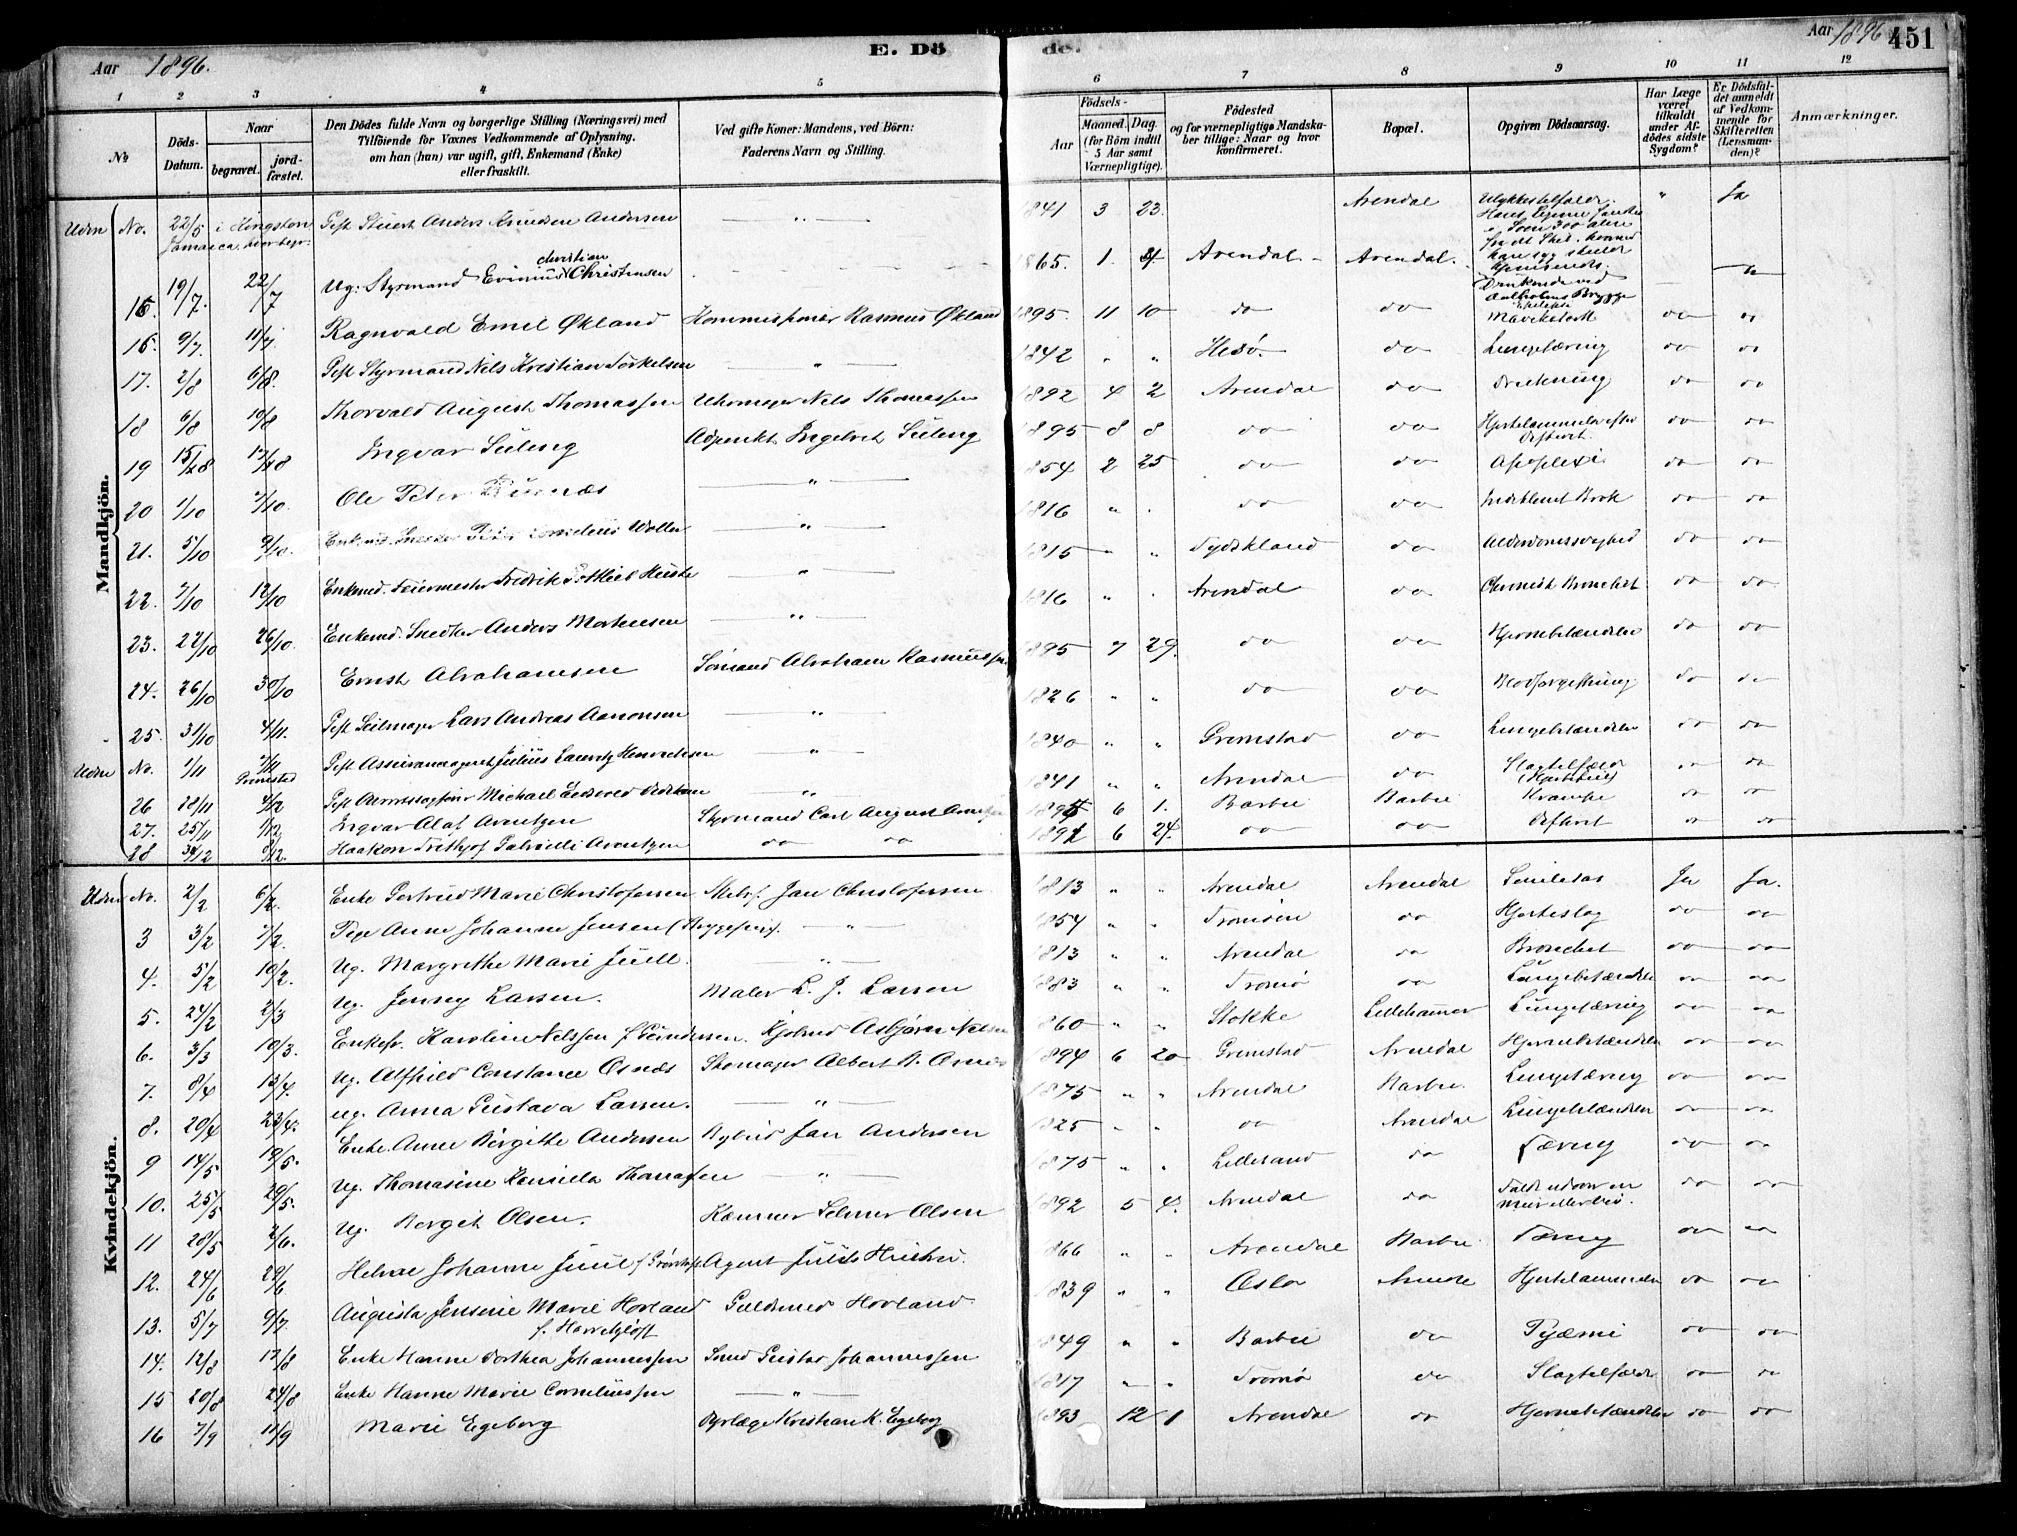 Aar 1896.
E. Dö
de.
Aar 1896
451
1 2 3 4 5 6 7 8 9 10 11 12
No
Döds-Datum.
Naar
begravet.
jord-fæstet.
Den Dödes fulde Navn og borgerlige Stilling (Næringsvei) med
Tilföiende for Voxnes Vedkommende af Oplysning,
om han (hun) var ugift, gift, Enkemand (Enke)
eller fraskilt.
Ved gifte Koner: Mandens, ved Börn:
Faderens Navn og Stilling.
Födsels-
Aar
Maaned. Dag.
(for Börn indtil
5 Aar samt
Værnepligtige).
Födested
og for værnepligtige Mandska-
ber tillige: Naar og hvor
konfirmeret.
Bopæl.
Opgiven Dödsaarsag.
Har Læge
været
tilkaldt
under Af-
dödes sidste
Sygdom?
Er Dödsfal-
det anmeldt
af Vedkom-
mende for
Skifteretten
(Lensman-
den)?
Anmærkninger.
Mandkjön.
Uden No. 22/5 i Kingston Gift Stuert Anders Knudsen Andersen — " — 1841 3 23. Arendal Ulykkestilfælde. " Ja
Jamaica, hvor begr.
christian
19/7. 22/7 Ug: Styrmand Evinius Christensen 1865. 1. Arendal Arendal
Druknede ved
Brygge
16. 9/7. 11/7. Ragnvald Emil Økland Kommissionær Rasmus Økland 1895 11 10 do do do do
17. 2/8 6/8. Gift Styrmand Nils Kristian Torkelsen — " — 1842 " " Hesø. do Lungetæring do do
18 6/8 10/8 Thorvald August Thomassen Uhrmager Nels Thomassen 1892 4 2 Arendal do Drukning do do
19 15/8 Ingvar Süling Adjunkt Ingebret Süling 1895 8 8 do do Hjertelammelse efter do do
Difterit.
20 1/10 7/10. Ole Peter — " — 1854 2 25 do do Apoplexi do do
21. 5/10 9/10. Enkemd. Snedker Peter Cornelius Woller — " — 1816 " . do do Indeklemt Brok do do
22. 7/10 12/10 Enkemd. Feiermester Fredrik Gottlieb — " — 1815 " " Tydskland do Alderdomssvaghed do do
23. 22/10 26/10. Enkemd. Snedker Anders Mortensen — " — 1816 " . Arendal do Chronisk Bronchit do do
24. 26/10 30/10 Ernst Abrahamsen Sömand Abraham Rasmussen 1895 7 29. do do Hjernebetændelse do do
25. 31/10 4/11. Gift Seilmager Lars Andreas Aanonsen — " — 1826 " " do do Blodforgiftning do do
Uden No. 1/11 7/11 Gift Assuranceagent Julius Lauritz Henrichsen — " — 1840 " " Grimstad do Lungebetændelse do do
Grimstad
26 28/11 4/12 Gift Michael — " — 1841 " " Arendal do Slagtilfælde do do
27. 25/11 Ingvar Olaf Arentzen Styrmand Carl August Arentzen 6 1. Barbu Barbu Krampe do do
28 Haakon Fritjof Arentzen do do 1891 6 24. do do Difterit do do
Kvindekjön.
Uden No. 2/2 6/2. Enke Gertrud Marie Christofersen Skibsf. Jan Christofersen 1813 " " Arendal Arendal Senilitas Ja Ja.
3 3/2 7/2. Pige Anne Johanne Jensen — " — 1854 " " Tromöen do Hjerteslag do do
4. 5/2 10/2. Ug. Margrethe Marie Juell — " — 1813 " " Arendal do Bronchit do do
5. 24/2 2/3 Ug. Jenny Larsen. Maler L. J. Larsen 1883 " " Tromø do Lungebetændelse do do
6. 3/3 10/3. Enkefr. Karoline Nelssen f. Gundersen. Kjøbmd Asbjørn Nelsen 1860 " " Stokke Lillehammer Lungetæring do do
7. 8/4 13/4. Ug. Alfhild Constance Osnæs Skomager Albert A. Osnæs 1894 6 20 Grimstad Arendal Hjernebetændelse do do
8. 20/4 23/4. Ug. Anna Gustava Larsen. — " — 1875 " " Arendal Barbu. Lungetæring do do
9 14/5 19/5. Enke. Anne Birgitte Andersen Jan Andersen 1825 " " do Arendal Lungebetændelse do do
10. 25/5 29/5. Ug. Thomasine Thomassen — " — 1875 " " Lillesand do Tæring do do
11 28/5 2/6. Ug. Borgit Olsen. Kæmner Selmer Olsen 1892 5 4. Arendal do Faldt udover en do do
Mur eller
12. 24/6 29/6 Helene Johanne Juul Agent Juuls Hustru. 1866 " " Arendal Barbu Tæring do do
13. 5/7 9/7. Augusta Jensine Marie Hovland Guldsmed Hovland. 1839 " " Oslo Arendal Hjertelammelse do do
14. 12/8 17/8 Enke Hanne Dorthea Johannessen Smed Gustav Johannessen 1849 " " Barbu do Pyæmi do do
15 20/8 24/8 Enke Hanne Marie Corneliussen — " — 1817 " " Tromø do Slagtilfælde do do
16 7/9 11/9 Marie Egeborg Dyrlæge Kristian K. Egeborg 1893 12 1 Arendal do Hjernebetændelse do do